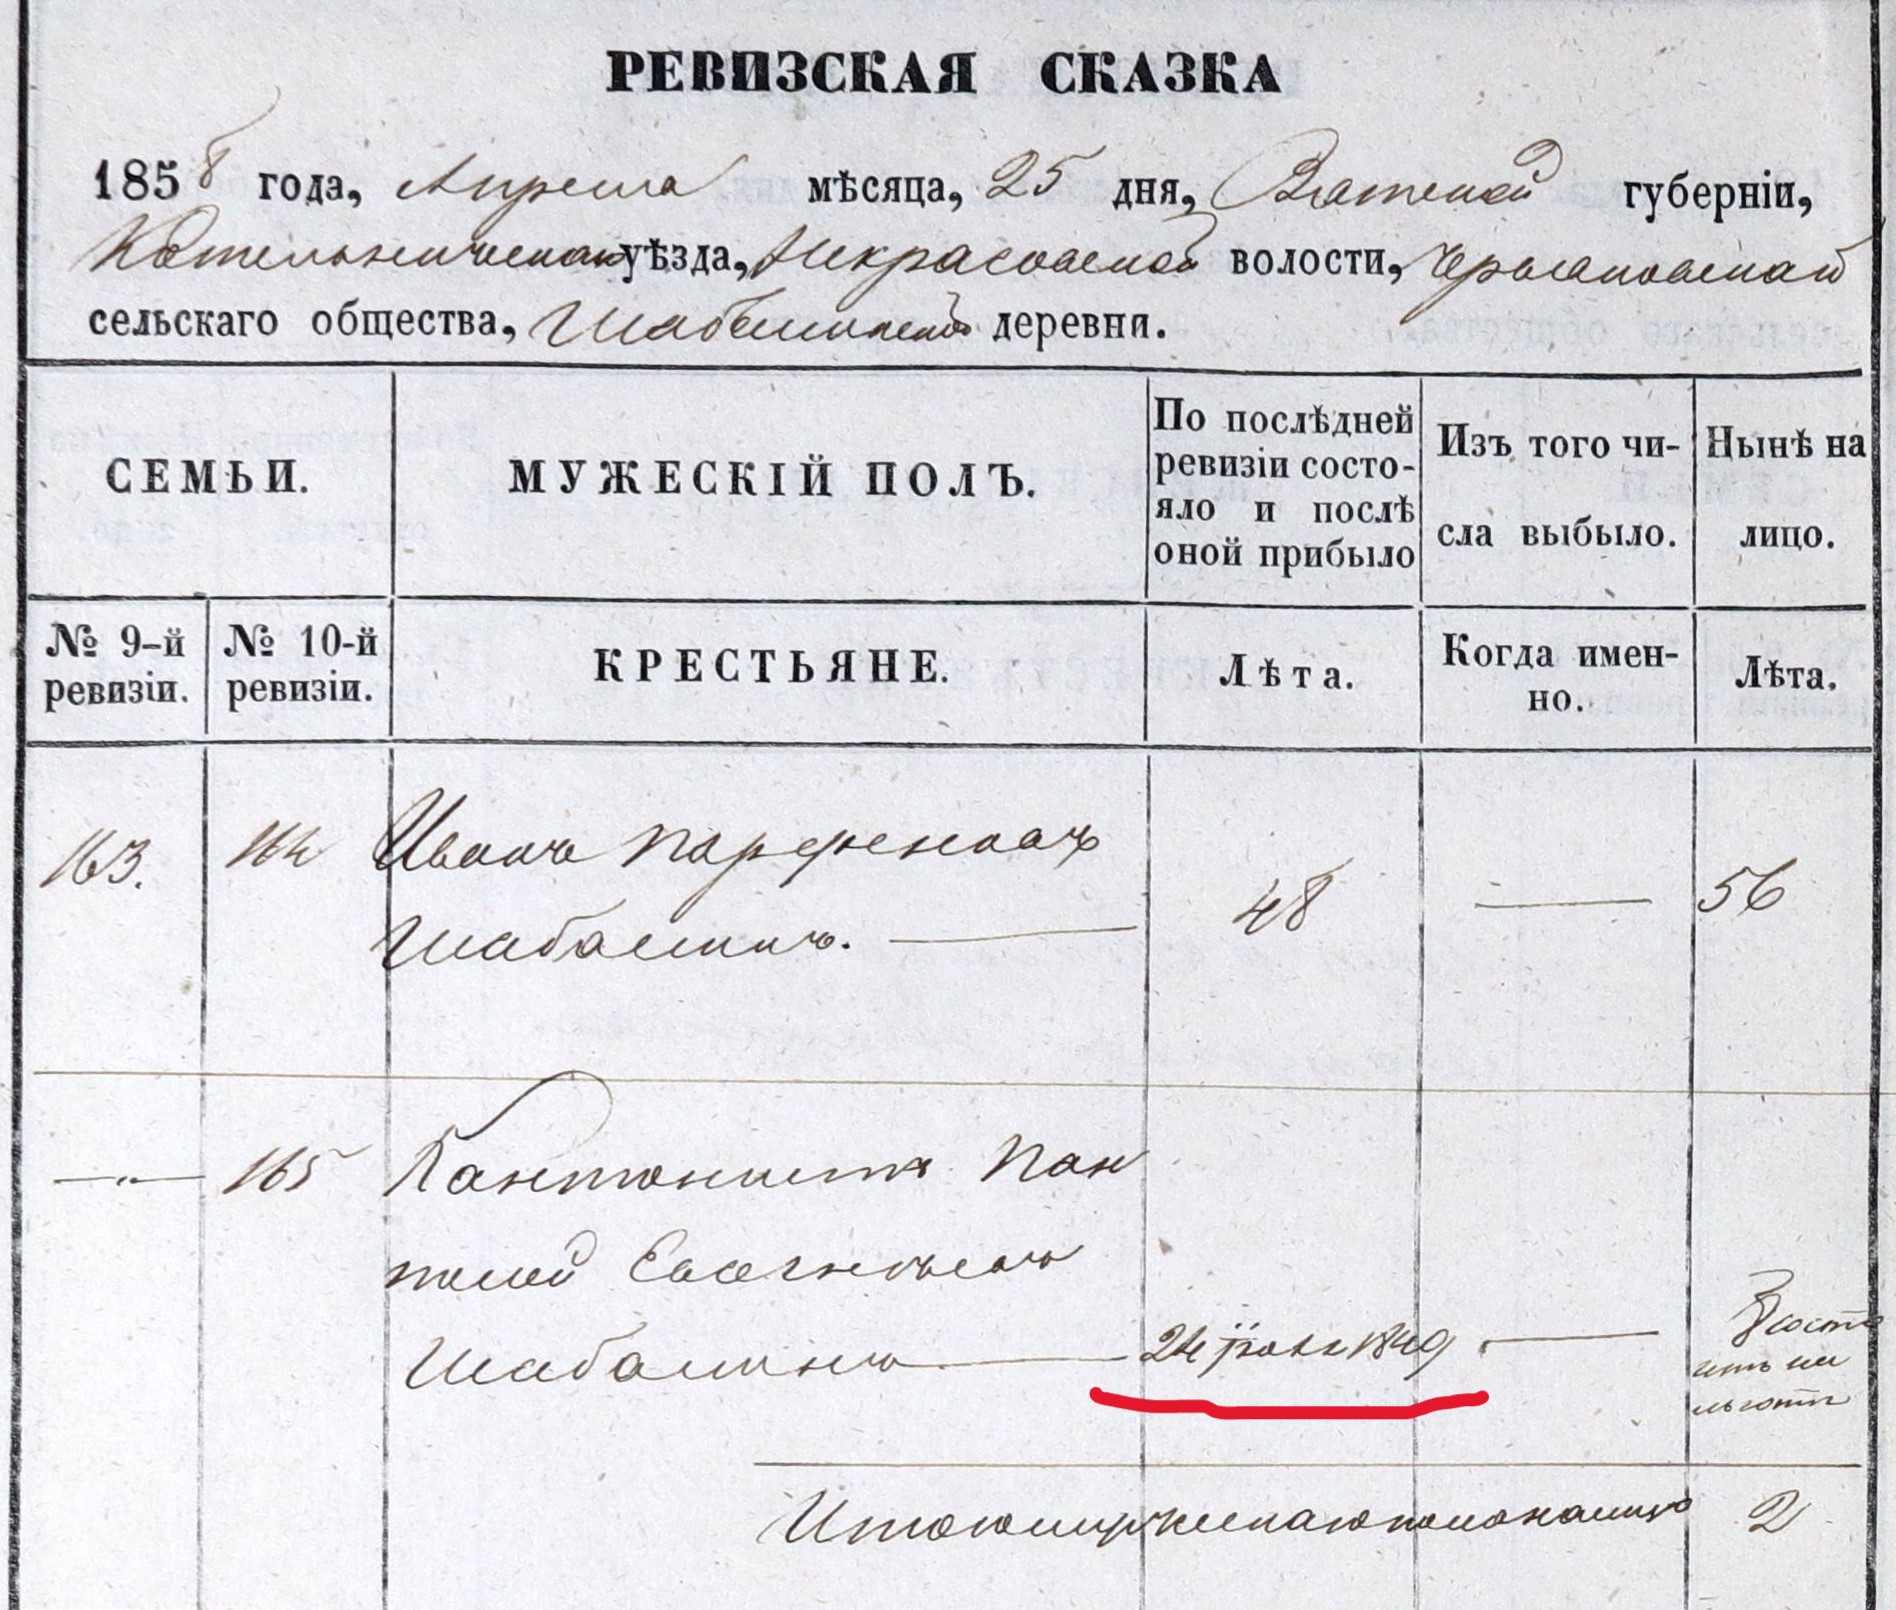 РЕВИЗСКАЯ СКАЗКА
1858 года, Апреля мѣсяца, 25 дня, Вятской губерніи,
Котельническаго уѣзда, Некрасовской волости,
сельскаго общества, Шабалинской деревни.
СЕМЬИ.
МУЖЕСКІЙ ПОЛЪ.
По послѣдней
ревизіи состо-
яло и послѣ
оной прибыло
Изъ того чи-
сла выбыло.
Нынѣ на
лицо.
№ 9-й
ревизіи.
№ 10-й
ревизіи.
КРЕСТЬЯНЕ.
Лѣта.
Когда имен-
но.
Лѣта.
163. 164 Иванъ Парфеновъ
Шабалинъ. 48 — 56
—„— 165 Кантонистъ Пан
телей Евгеньевъ
Шабалинъ 24 Іюля 1849 —
состо
итъ на
льготѣ
Итого мужескаго пола на лицо 2